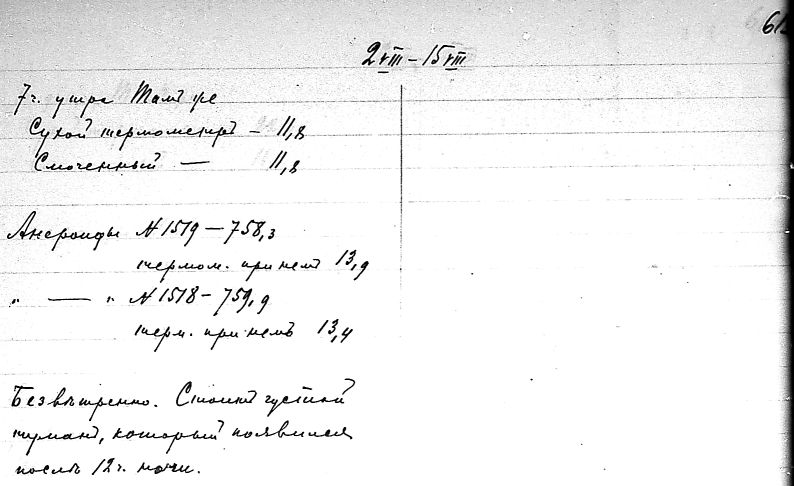 61
2 VIII – 15 VIII
7 ч. утра Тамъ же
Сухой термометръ – 11,8
Смоченный — 11,8
Анероиды N 1519 – 758,3
термом. при немъ 13,9
" — " N 1518 – 759,9
терм. при немъ 13,4
Безвѣтренно. Стоитъ густой
туманъ, который появился
послѣ 12 ч. ночи.